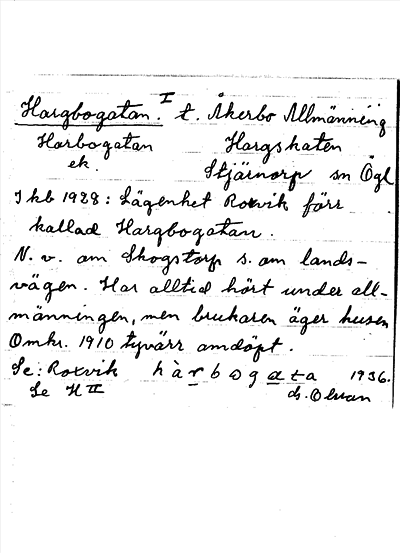 Hargbogatan. I t. Åkerbo Allmänning
Harbogatan Hargskaten
ek. Stjärnorp sn Ögl
I kb 1928: Lägenhet Roxvik förr
kallad Hargbogatan.
N. v. om Skogstorp s. om lands-
vägen. Har alltid hört under all-
männingen, men brukaren äger husen
Omkr. 1910 tyvärr omdöpt.
Se: Roxvik hàrbogata 1936.
Se H II